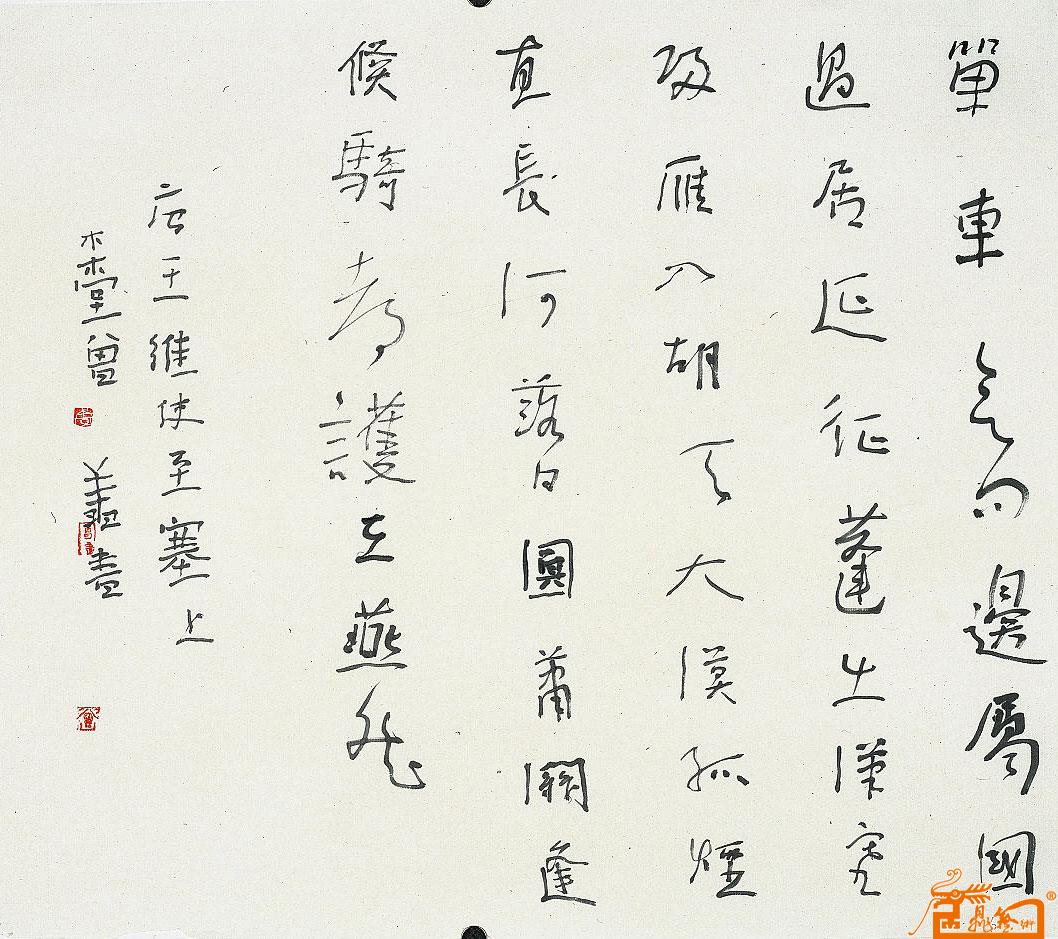 單車欲問邊屬國
過居延征蓬出漢塞
歸雁入胡天大漠孤煙
直長河落日圓蕭關逢
候騎都護在燕然
唐王維使至塞上
木木堂曾翔書